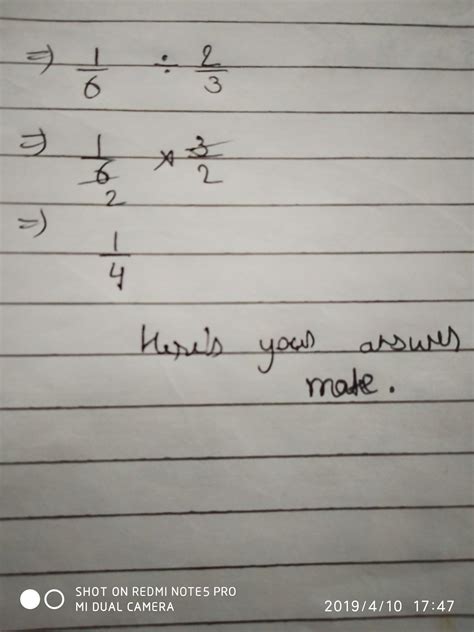 ⇒) 1/6 ÷ 2/3
⇒) 1/6 × 3/2
2
⇒) 1/4
Here's your answer
mate.
SHOT ON REDMI NOTE5 PRO
MI DUAL CAMERA
2019/4/10 17:47